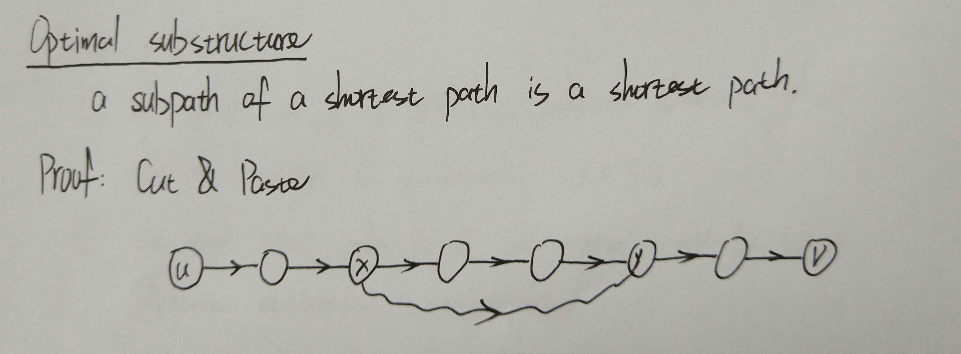 Optimal substructure
a subpath of a shortest path is a shortest path.
Proof: Cut & Paste
u x y v